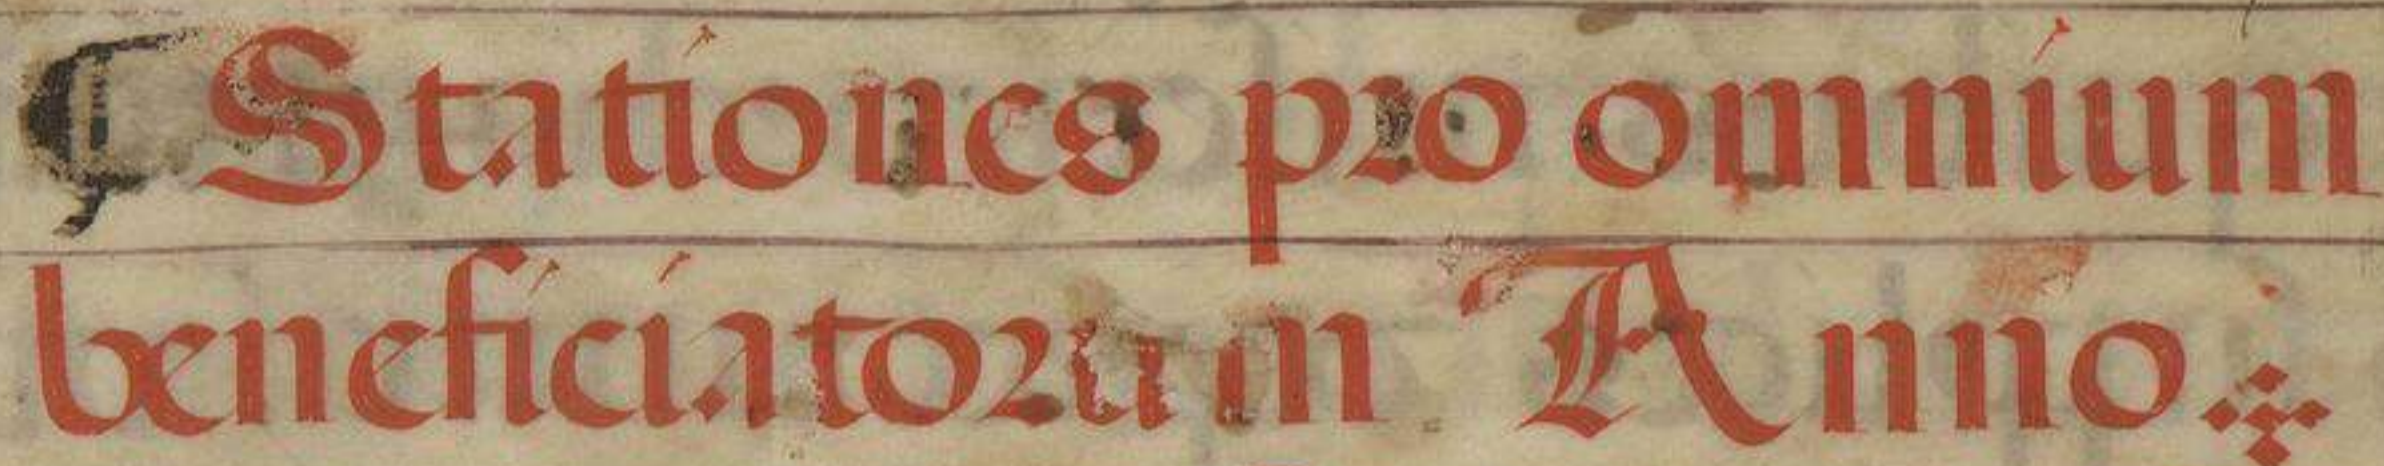 ¶ Stationes pro omnium
beneficiatorum Anno